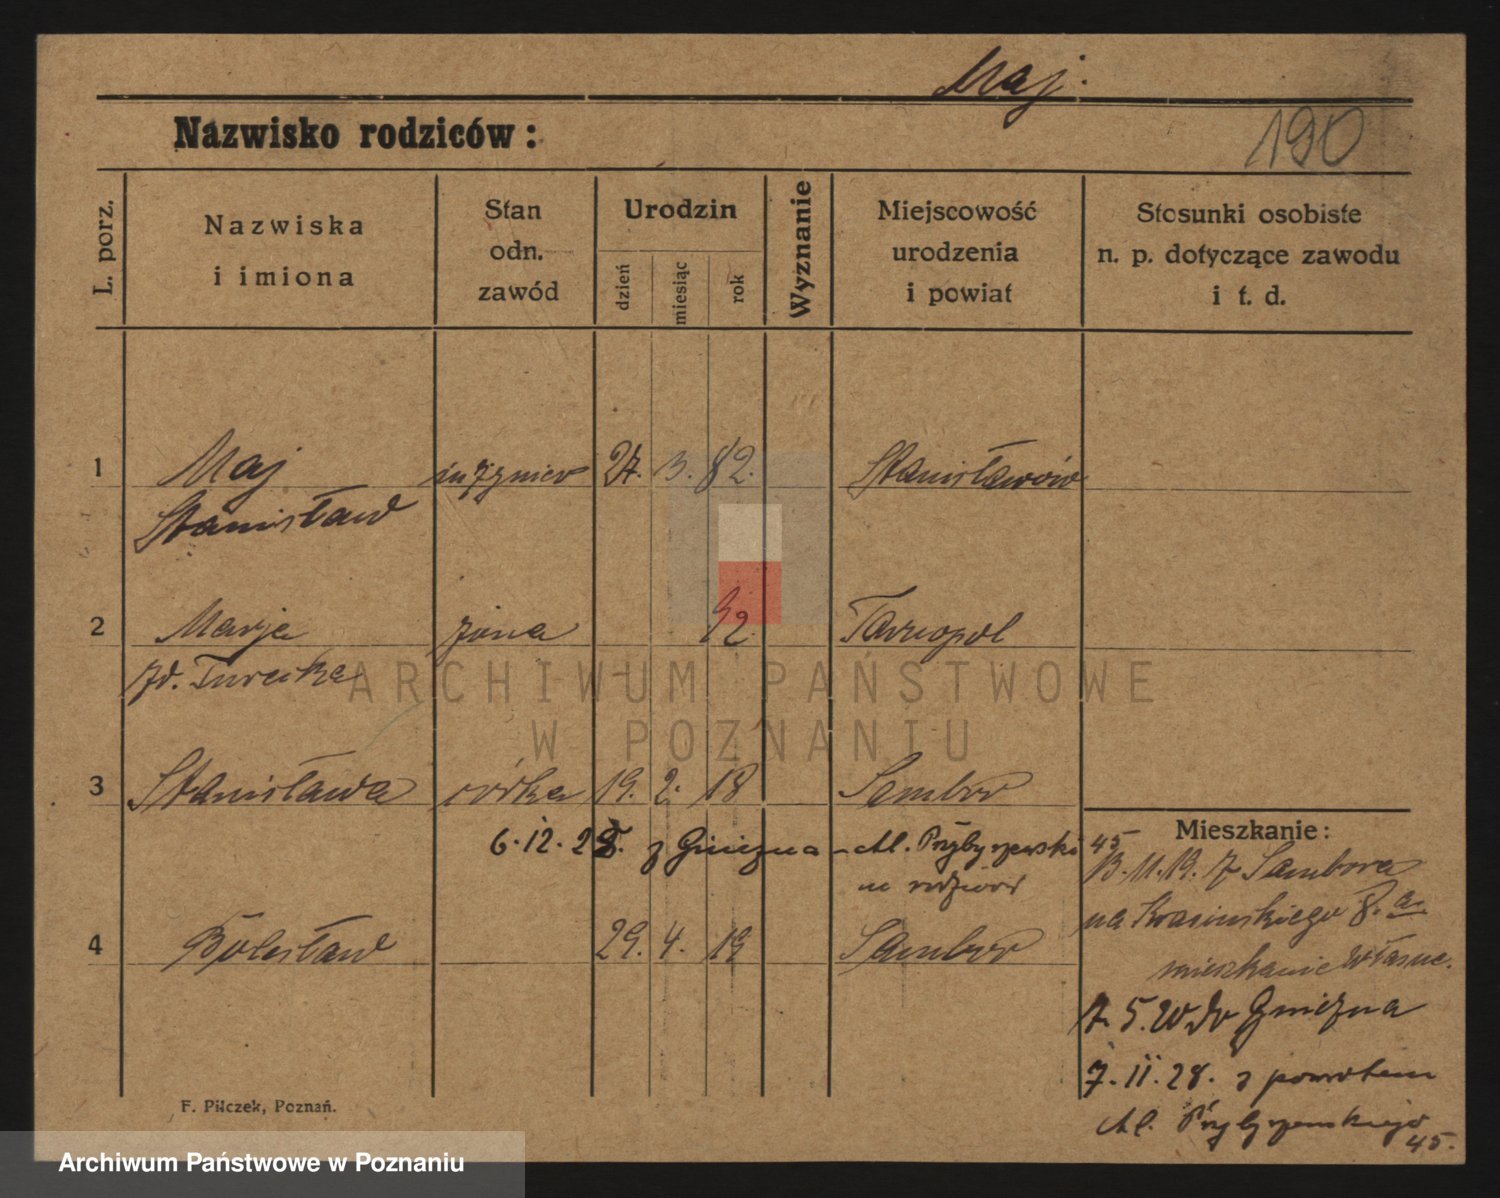 Maj.
Nazwisko rodziców:
190
L. porz.
Nazwiska
i imiona
Stan
odn.
zawód
Urodzin
dzień
miesiąc
rok
Wyznanie
Miejscowość
urodzenia
i powiat
Stosunki osobiste
n. p. dotyczące zawodu
i t. d.
1 Maj inżynier 27. 3. 82. Stanisławów
Stanisław
2 Marja żona 92. Tarnopol
zd. Turecka
3 Stanisława córka 19. 2. 18 Sambor
6.12.28. z Gniezna - Al. Przybyszewski 45
u rodziców
4 Bolesław 29. 4. 19 Sambor
Mieszkanie:
13.11.19. z Sambora
na Krasińskiego 8.a.
mieszkanie własne.
5.20 do Gniezna
7.11.28. z powrotem
Al. Przybyszewskiego
45.
F. Pilczek, Poznań.
ARCHIWUM PAŃSTWOWE
W POZNANIU
Archiwum Państwowe w Poznaniu